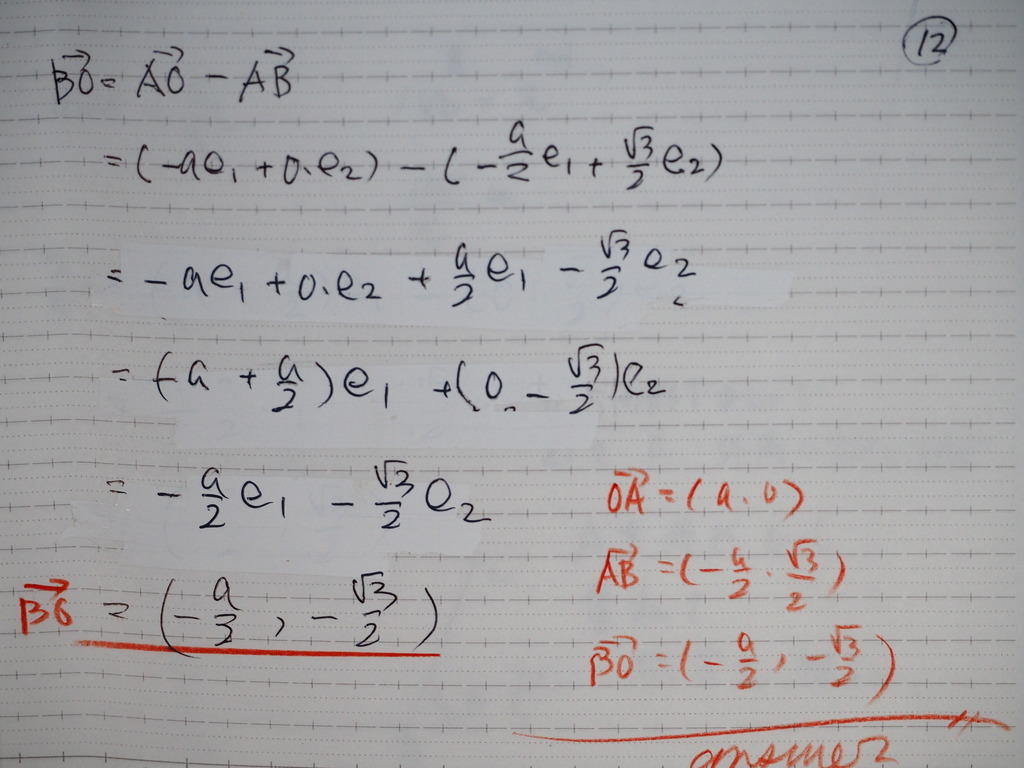 ⑫
→BO = →AO − →AB
= (-ae₁ + 0.e₂) − (-a/2 e₁ + √3/2 e₂)
= -ae₁ + 0.e₂ + a/2 e₁ − √3/2 e₂
= (-a + a/2)e₁ + (0 − √3/2)e₂
= -a/2 e₁ − √3/2 e₂
→BO = (-a/2, -√3/2)
→OA = (a.0)
→AB = (-a/2 . √3/2)
→BO = (-a/2, -√3/2)
answer